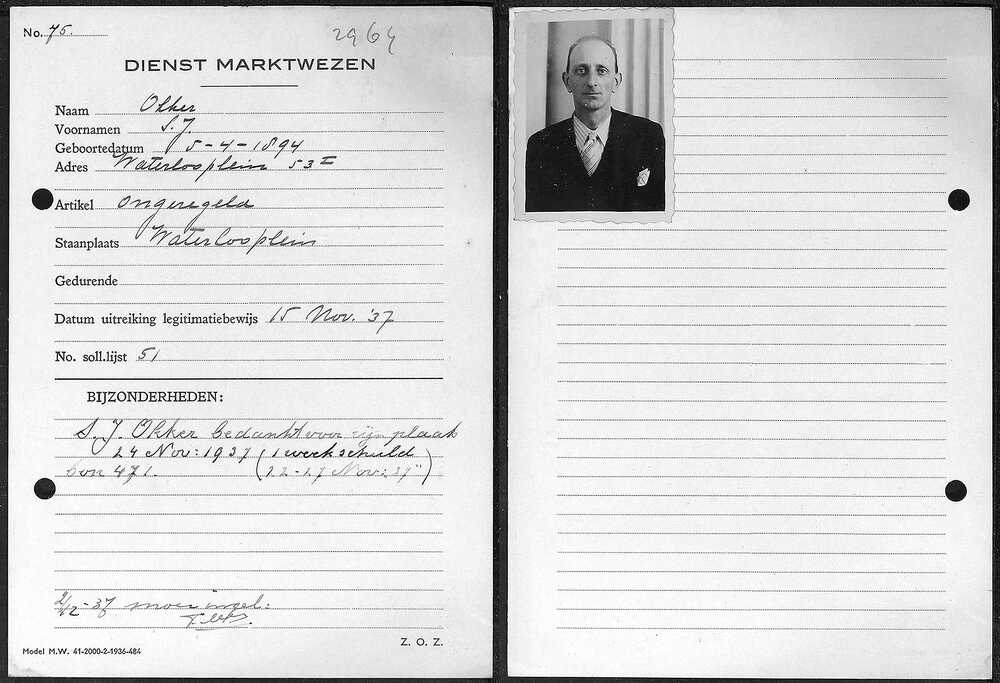 No. 75.
2964
DIENST MARKTWEZEN
Naam Okker
Voornamen S. J.
Geboortedatum 5-4-1894
Adres Waterlooplein 53 I
Artikel Ongeregeld
Staanplaats Waterlooplein
Gedurende
Datum uitreiking legitimatiebewijs 15 Nov. '37
No. soll.lijst 51
BIJZONDERHEDEN:
S. J. Okker bedankt voor zijn plaats
24 Nov: 1937 (1 week schuld
bon 471. (22-27 Nov: 37")
2/12-37
Z. O. Z.
Model M.W. 41-2000-2-1936-484